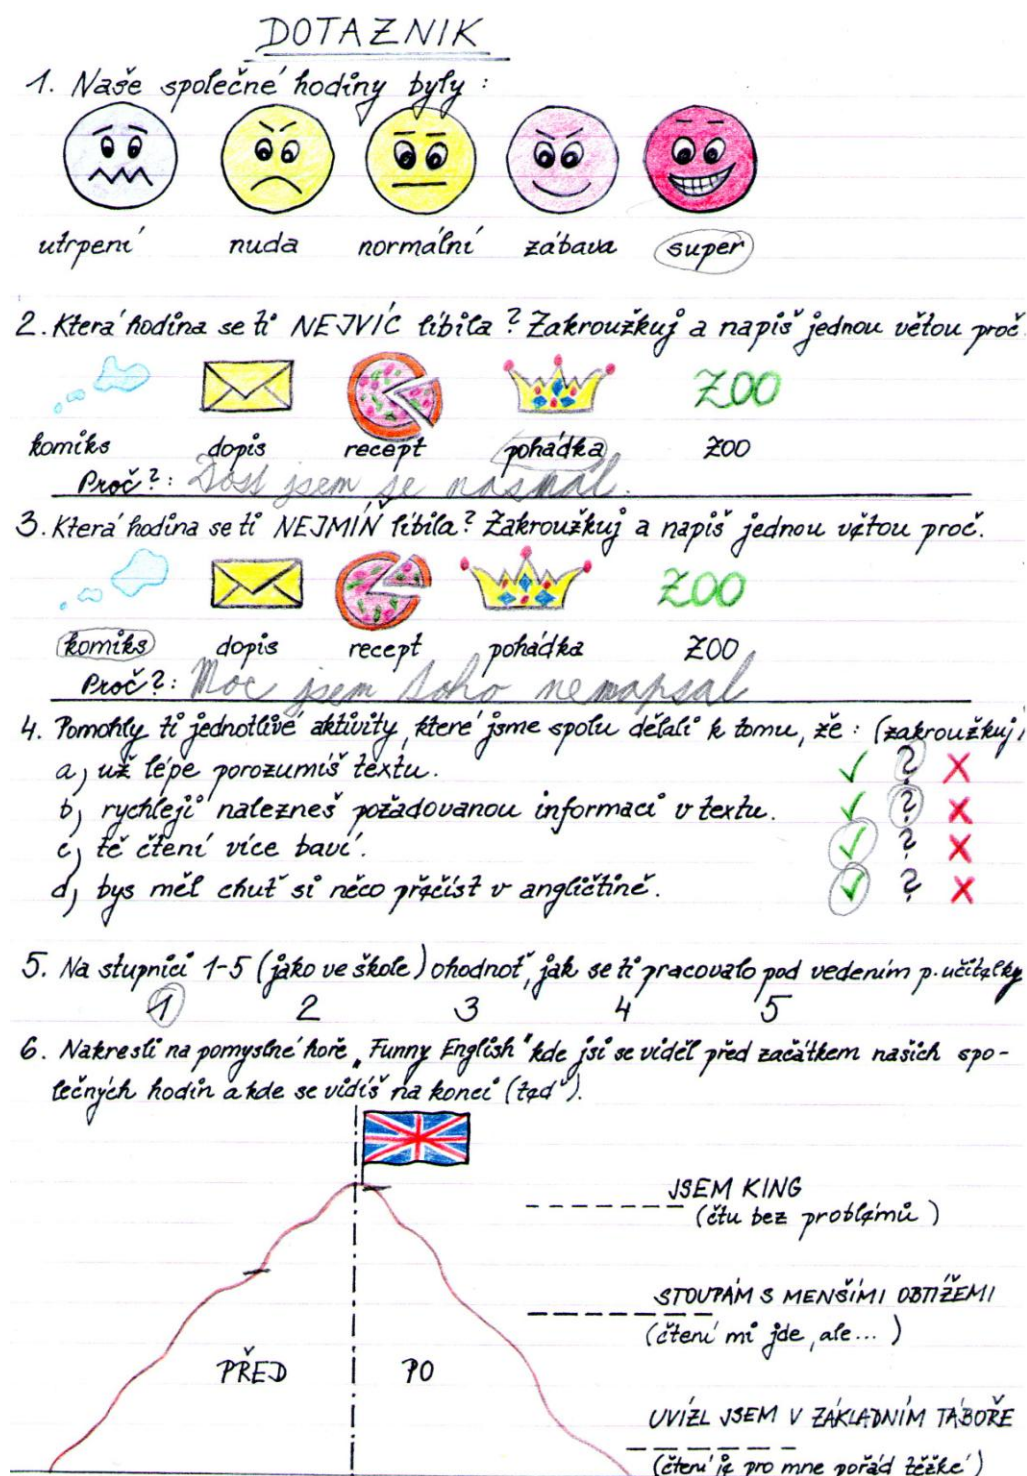 DOTAZNIK
1. Naše společné hodiny byly :
utrpení nuda normální zábava super
2. Která hodina se ti NEJVÍC líbila ? Zakroužkuj a napiš jednou větou proč.
ZOO
komiks dopis recept pohádka ZOO
Proč ? : Dost jsem se nasmál.
3. Která hodina se ti NEJMÍŇ líbila ? Zakroužkuj a napiš jednou větou proč.
ZOO
komiks dopis recept pohádka ZOO
Proč ? : Moc jsem toho nenapsal
4. Pomohly ti jednotlivé aktivity, které jsme spolu dělali k tomu, že : (zakroužkuj)
a) už lépe porozumíš textu. ✓ ? X
b) rychleji nalezneš požadovanou informaci v textu. ✓ ? X
c) tě čtení více baví. ✓ ? X
d) bys měl chuť si něco přečíst v angličtině. ✓ ? X
5. Na stupnici 1-5 (jako ve škole) ohodnoť, jak se ti pracovalo pod vedením p. učitelky
1 2 3 4 5
6. Nakresli na pomyslné hoře „Funny English" kde jsi se viděl před začátkem našich spo-
lečných hodin a kde se vidíš na konci (teď).
JSEM KING
(čtu bez problémů)
STOUPÁM S MENŠÍMI OBTÍŽEMI
(čtení mi jde, ale...)
PŘED PO
UVÍZL JSEM V ZÁKLADNÍM TÁBOŘE
(čtení je pro mne pořád těžké)